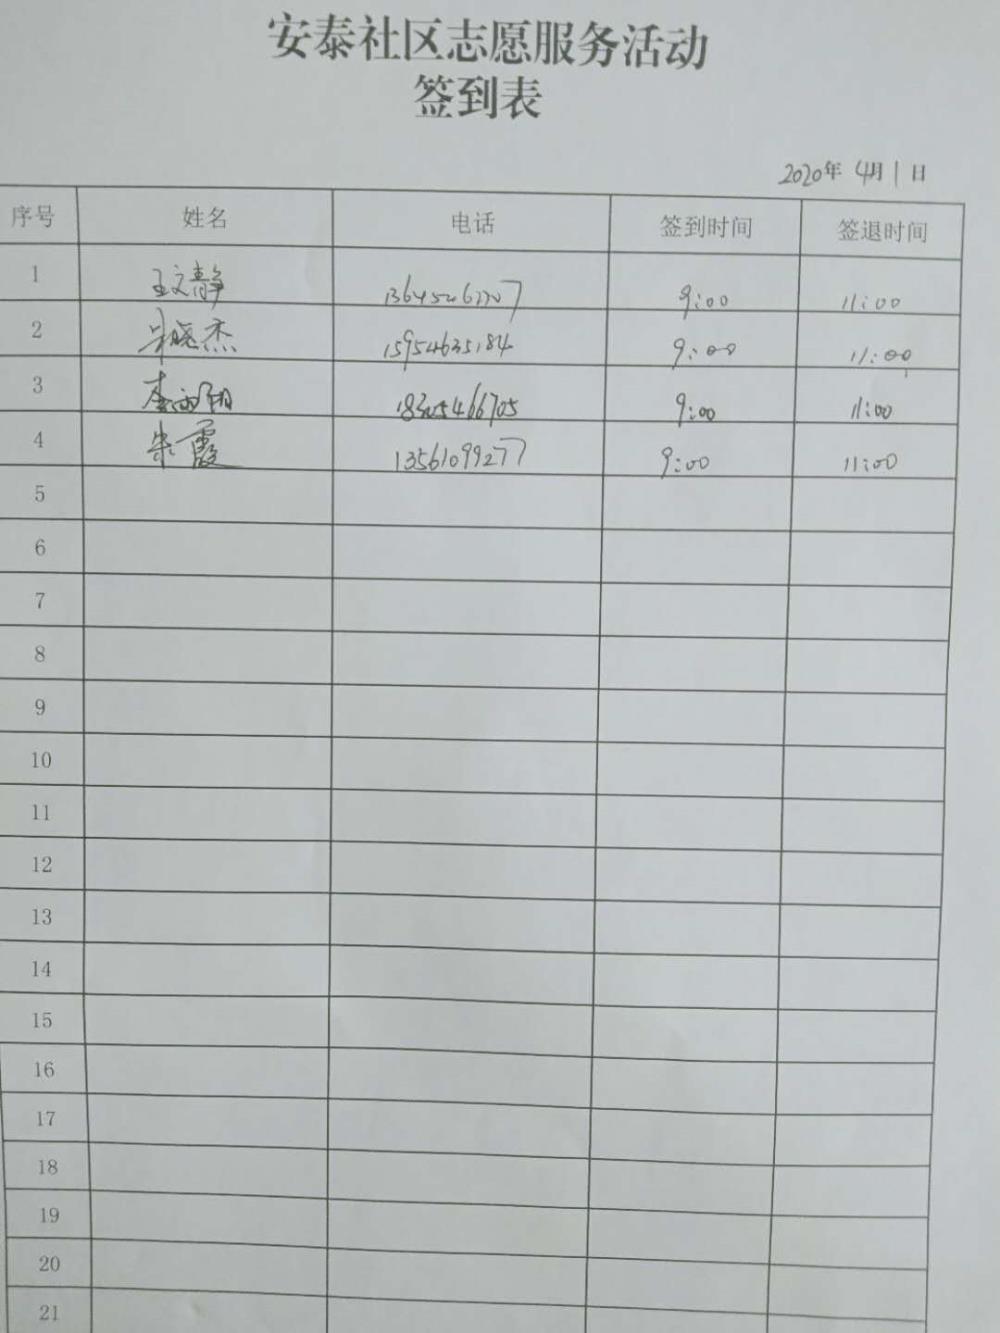 安泰社区志愿服务活动
签到表
2020年 4月1日
序号 姓名 电话 签到时间 签退时间
1 王文静 9:00 11:00
2 晓杰 15954635184 9:00 11:00
3 李 阳 18305466705 9:00 11:00
4 朱霞 13561099277 9:00 11:00
5
6
7
8
9
10
11
12
13
14
15
16
17
18
19
20
21